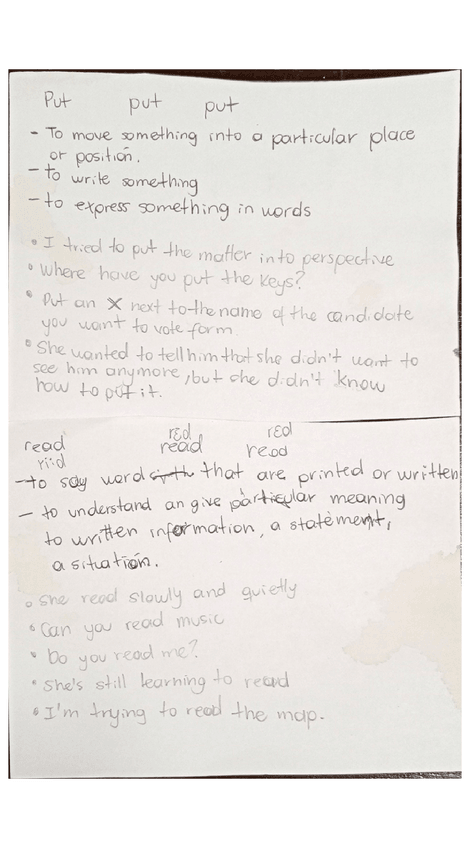 Put put put
- To move something into a particular place
or position.
- to write something
- to express something in words
• I tried to put the matter into perspective
• Where have you put the keys?
• Put an X next to the name of the candidate
you want to vote form.
• She wanted to tell him that she didn't want to
see him anymore, but she didn't know
how to put it.
rɛd rɛd
read read read
ri:d
- to say word that are printed or written
- to understand an give particular meaning
to written information, a statement,
a situation.
• She read slowly and quietly
• Can you read music
• Do you read me?
• She's still learning to read
• I'm trying to read the map.